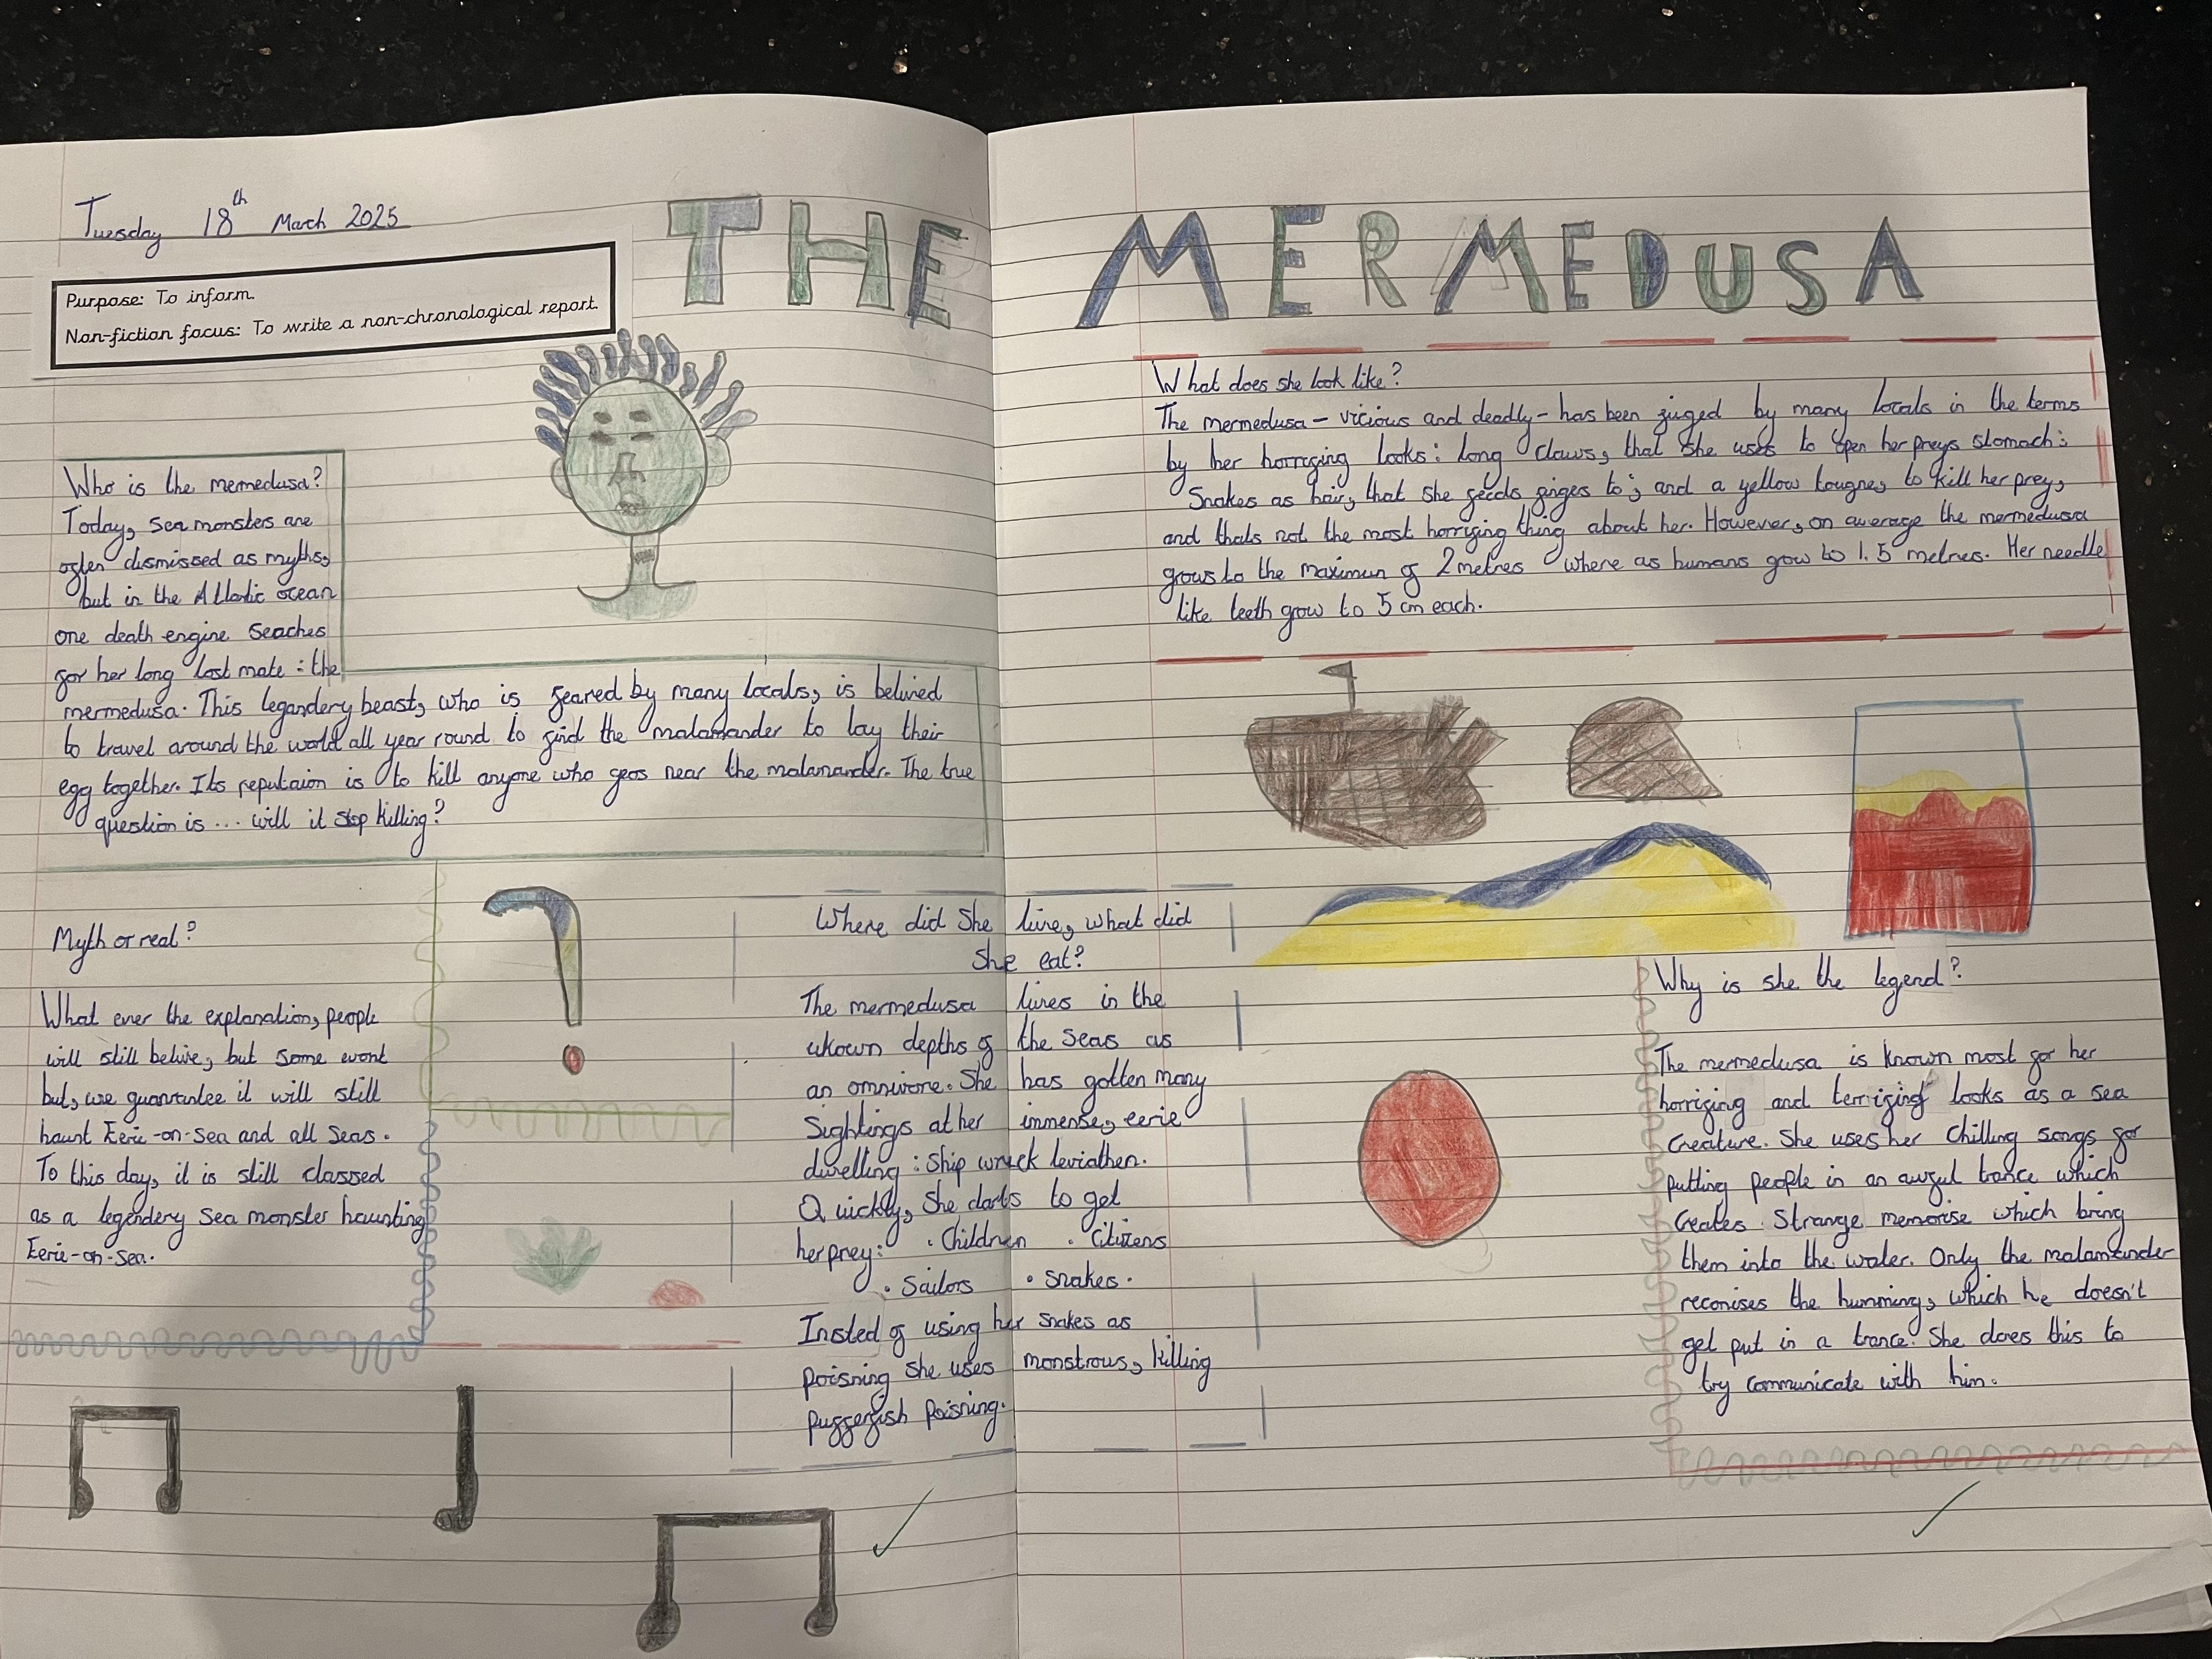 Tuesday 18th March 2025
THE MERMEDUSA
Purpose: To inform.
Non-fiction focus: To write a non-chronological report.
Who is the mermedusa?
Today, sea monsters are
often dismissed as myths,
but in the Atlantic ocean
one death engine seaches
for her long lost mate : the
mermedusa. This legandery beast, who is feared by many locals, is belived
to travel around the world all year round to find the malamander to lay their
egg together. Its reputaion is to kill anyone who goes near the malamander. The true
question is ... will it stop killing?
What does she look like?
The mermedusa - vicious and deadly - has been juged by many locals in the terms
by her horrifing looks: long claws, that she uses to open her preys stomach;
Snakes as hair, that she feeds finges to; and a yellow tougne, to kill her prey,
and thats not the most horrifing thing about her. However, on average the mermedusa
grows to the maximun of 2 metres where as humans grow to 1.5 metres. Her needle
like teeth grow to 5 cm each.
Myth or real?
What ever the explanation, people
will still belive, but some wont
but, we guarantee it will still
haunt Eerie-on-Sea and all seas.
To this day, it is still classed
as a legendery sea monster haunting
Eerie-on-Sea.
Where did she live, what did
she eat?
The mermedusa lives in the
ukown depths of the seas as
an omnivore. She has gotten many
sightings at her immense, eerie
dwelling : Ship wreck leviathen.
Quickly, she darts to get
her prey: • Children • Citizens
• Sailors • snakes.
Insted of using her snakes as
poisning she uses monstrous, killing
pufferfish poisning.
Why is she the legend?
The mermedusa is known most for her
horrifing and terrifing looks as a sea
creature. She uses her chilling songs for
putting people in an awful trance which
creates strange memorise which bring
them into the water. Only the malamander
reconises the humming, which he doesn't
get put in a trance. She does this to
try communicate with him.